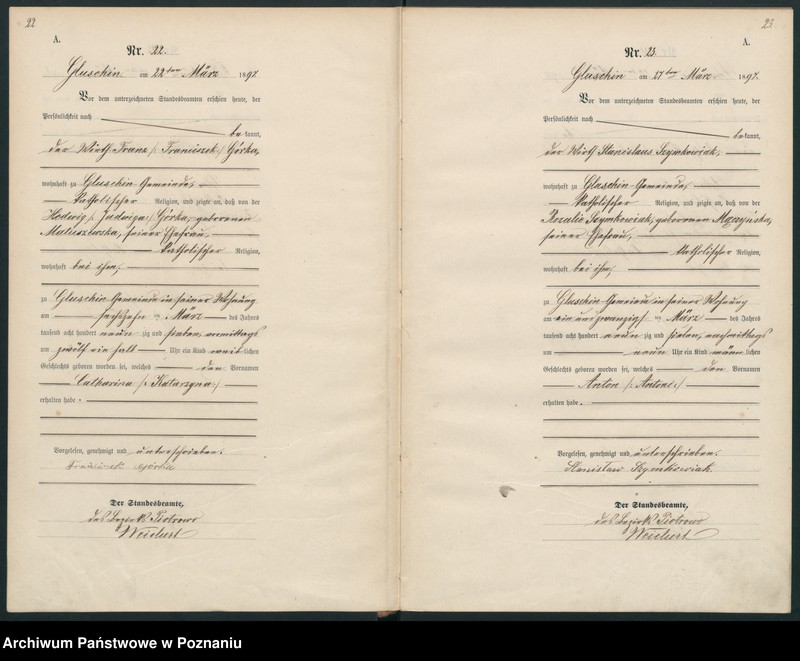 22
A.
Nr. 22.
Gluschin am 22ten März 1897.
Vor dem unterzeichneten Standesbeamten erschien heute, der
Persönlichkeit nach
bekannt,
der Wirth Franz /: Franciszek :/ Górka,
wohnhaft zu Gluschin Gemeinde,
katholischer Religion, und zeigte an, daß von der
Hedwig /: Jadwiga :/ Górka, geborenen
Matuszewska, seiner Ehefrau,
katholischer Religion,
wohnhaft bei ihm,
zu Gluschin Gemeinde in seiner Wohnung
am sechszehn ten März des Jahres
tausend acht hundert neunzig und sieben, vormittags
um zwölf ein halb Uhr ein Kind weiblichen
Geschlechts geboren worden sei, welches den Vornamen
Catharina /: Katarzyna :/
erhalten habe.
Vorgelesen, genehmigt und unterschrieben.
Franciszek Górka
Der Standesbeamte,
des Bezirks Piotrowo
Weichert
23
A.
Nr. 23.
Gluschin am 27ten März 1897.
Vor dem unterzeichneten Standesbeamten erschien heute, der
Persönlichkeit nach
bekannt,
der Wirth Stanislaus Szymkowiak,
wohnhaft zu Gluschin Gemeinde,
katholischer Religion, und zeigte an, daß von der
Rozalie Szymkowiak, geborenen
seiner Ehefrau,
katholischer Religion,
wohnhaft bei ihm,
zu Gluschin Gemeinde in seiner Wohnung
am ein und zwanzigsten März des Jahres
tausend acht hundert neunzig und sieben, nachmittags
um neun Uhr ein Kind männlichen
Geschlechts geboren worden sei, welches den Vornamen
Anton /: Antoni :/
erhalten habe.
Vorgelesen, genehmigt und unterschrieben.
Stanisław Szymkowiak
Der Standesbeamte,
des Bezirks Piotrowo
Weichert
Archiwum Państwowe w Poznaniu